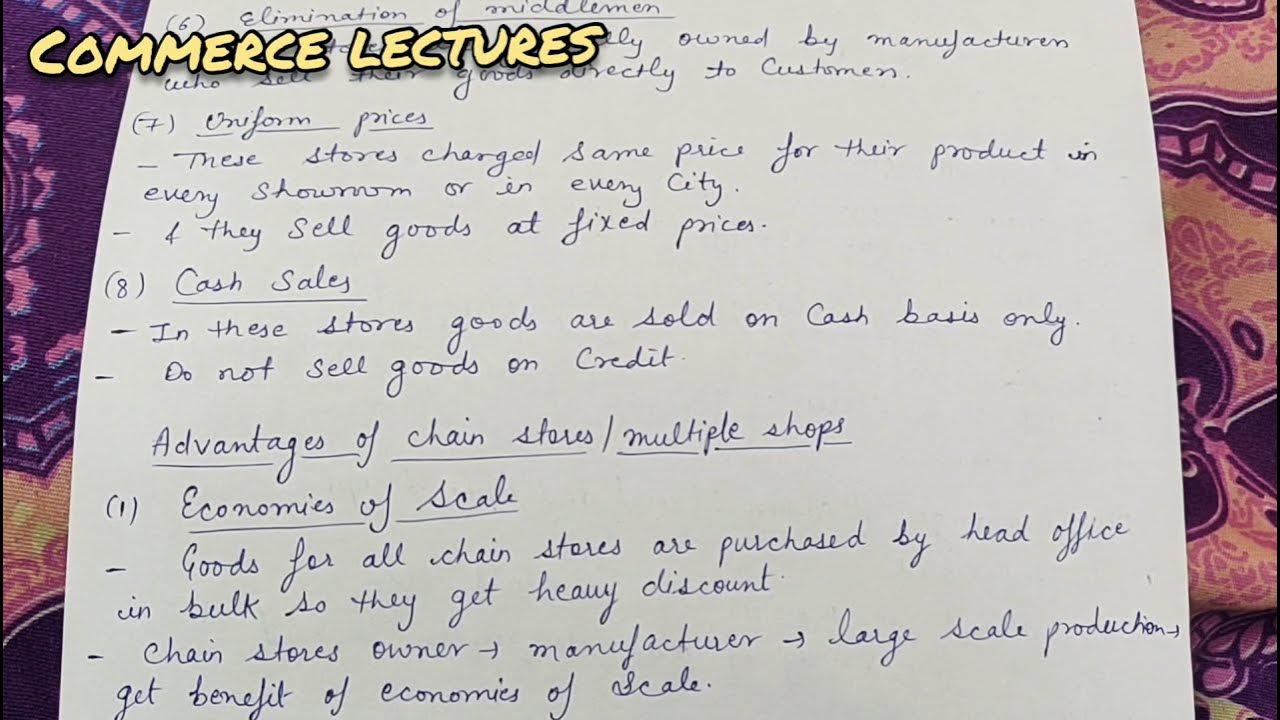 (6) Elimination of middlemen
COMMERCE LECTURES
ly owned by manufacturers
who sell their goods directly to Customers.
(7) Uniform prices
- These stores charged same price for their product in
every showroom or in every City.
- & they Sell goods at fixed prices.
(8) Cash Sales
- In these stores goods are sold on Cash basis only.
- Do not sell goods on Credit.
Advantages of chain stores/multiple shops
(1) Economies of Scale
- Goods for all chain stores are purchased by head office
in bulk so they get heavy discount.
- Chain stores owner → manufacturer → large scale production →
get benefit of economies of Scale.